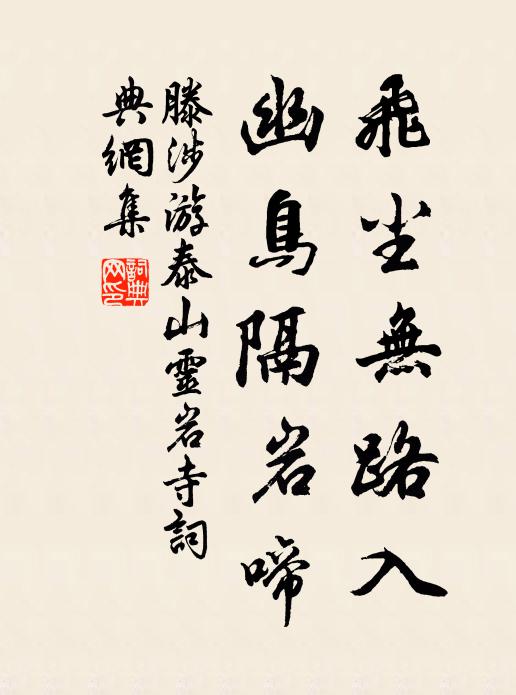 飛尘無路入
幽鳥隔岩啼
滕涉游泰山靈岩寺詞
典網集
詞典
网印